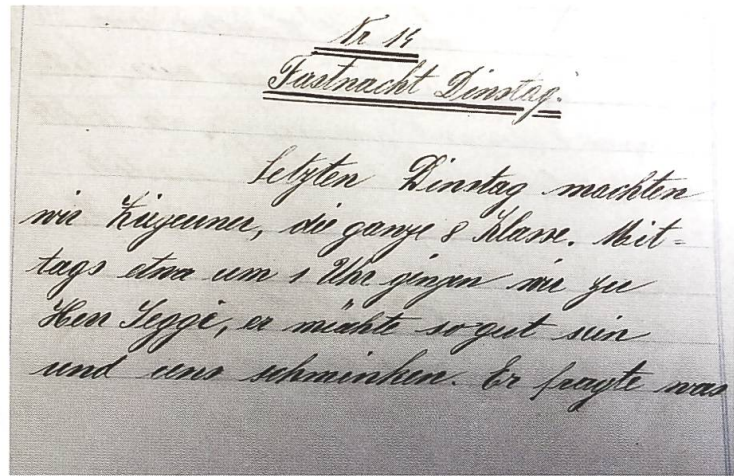 Nr 14
Fastnacht Dinstag.
Letzten Dinstag machten
wir Zigeuner, die ganze 8 Klasse. Mit=
tags etwa um 1 Uhr gingen wir zu
Herr Jeggi, er möchte so gut sein
und uns schminken. Er fragte was